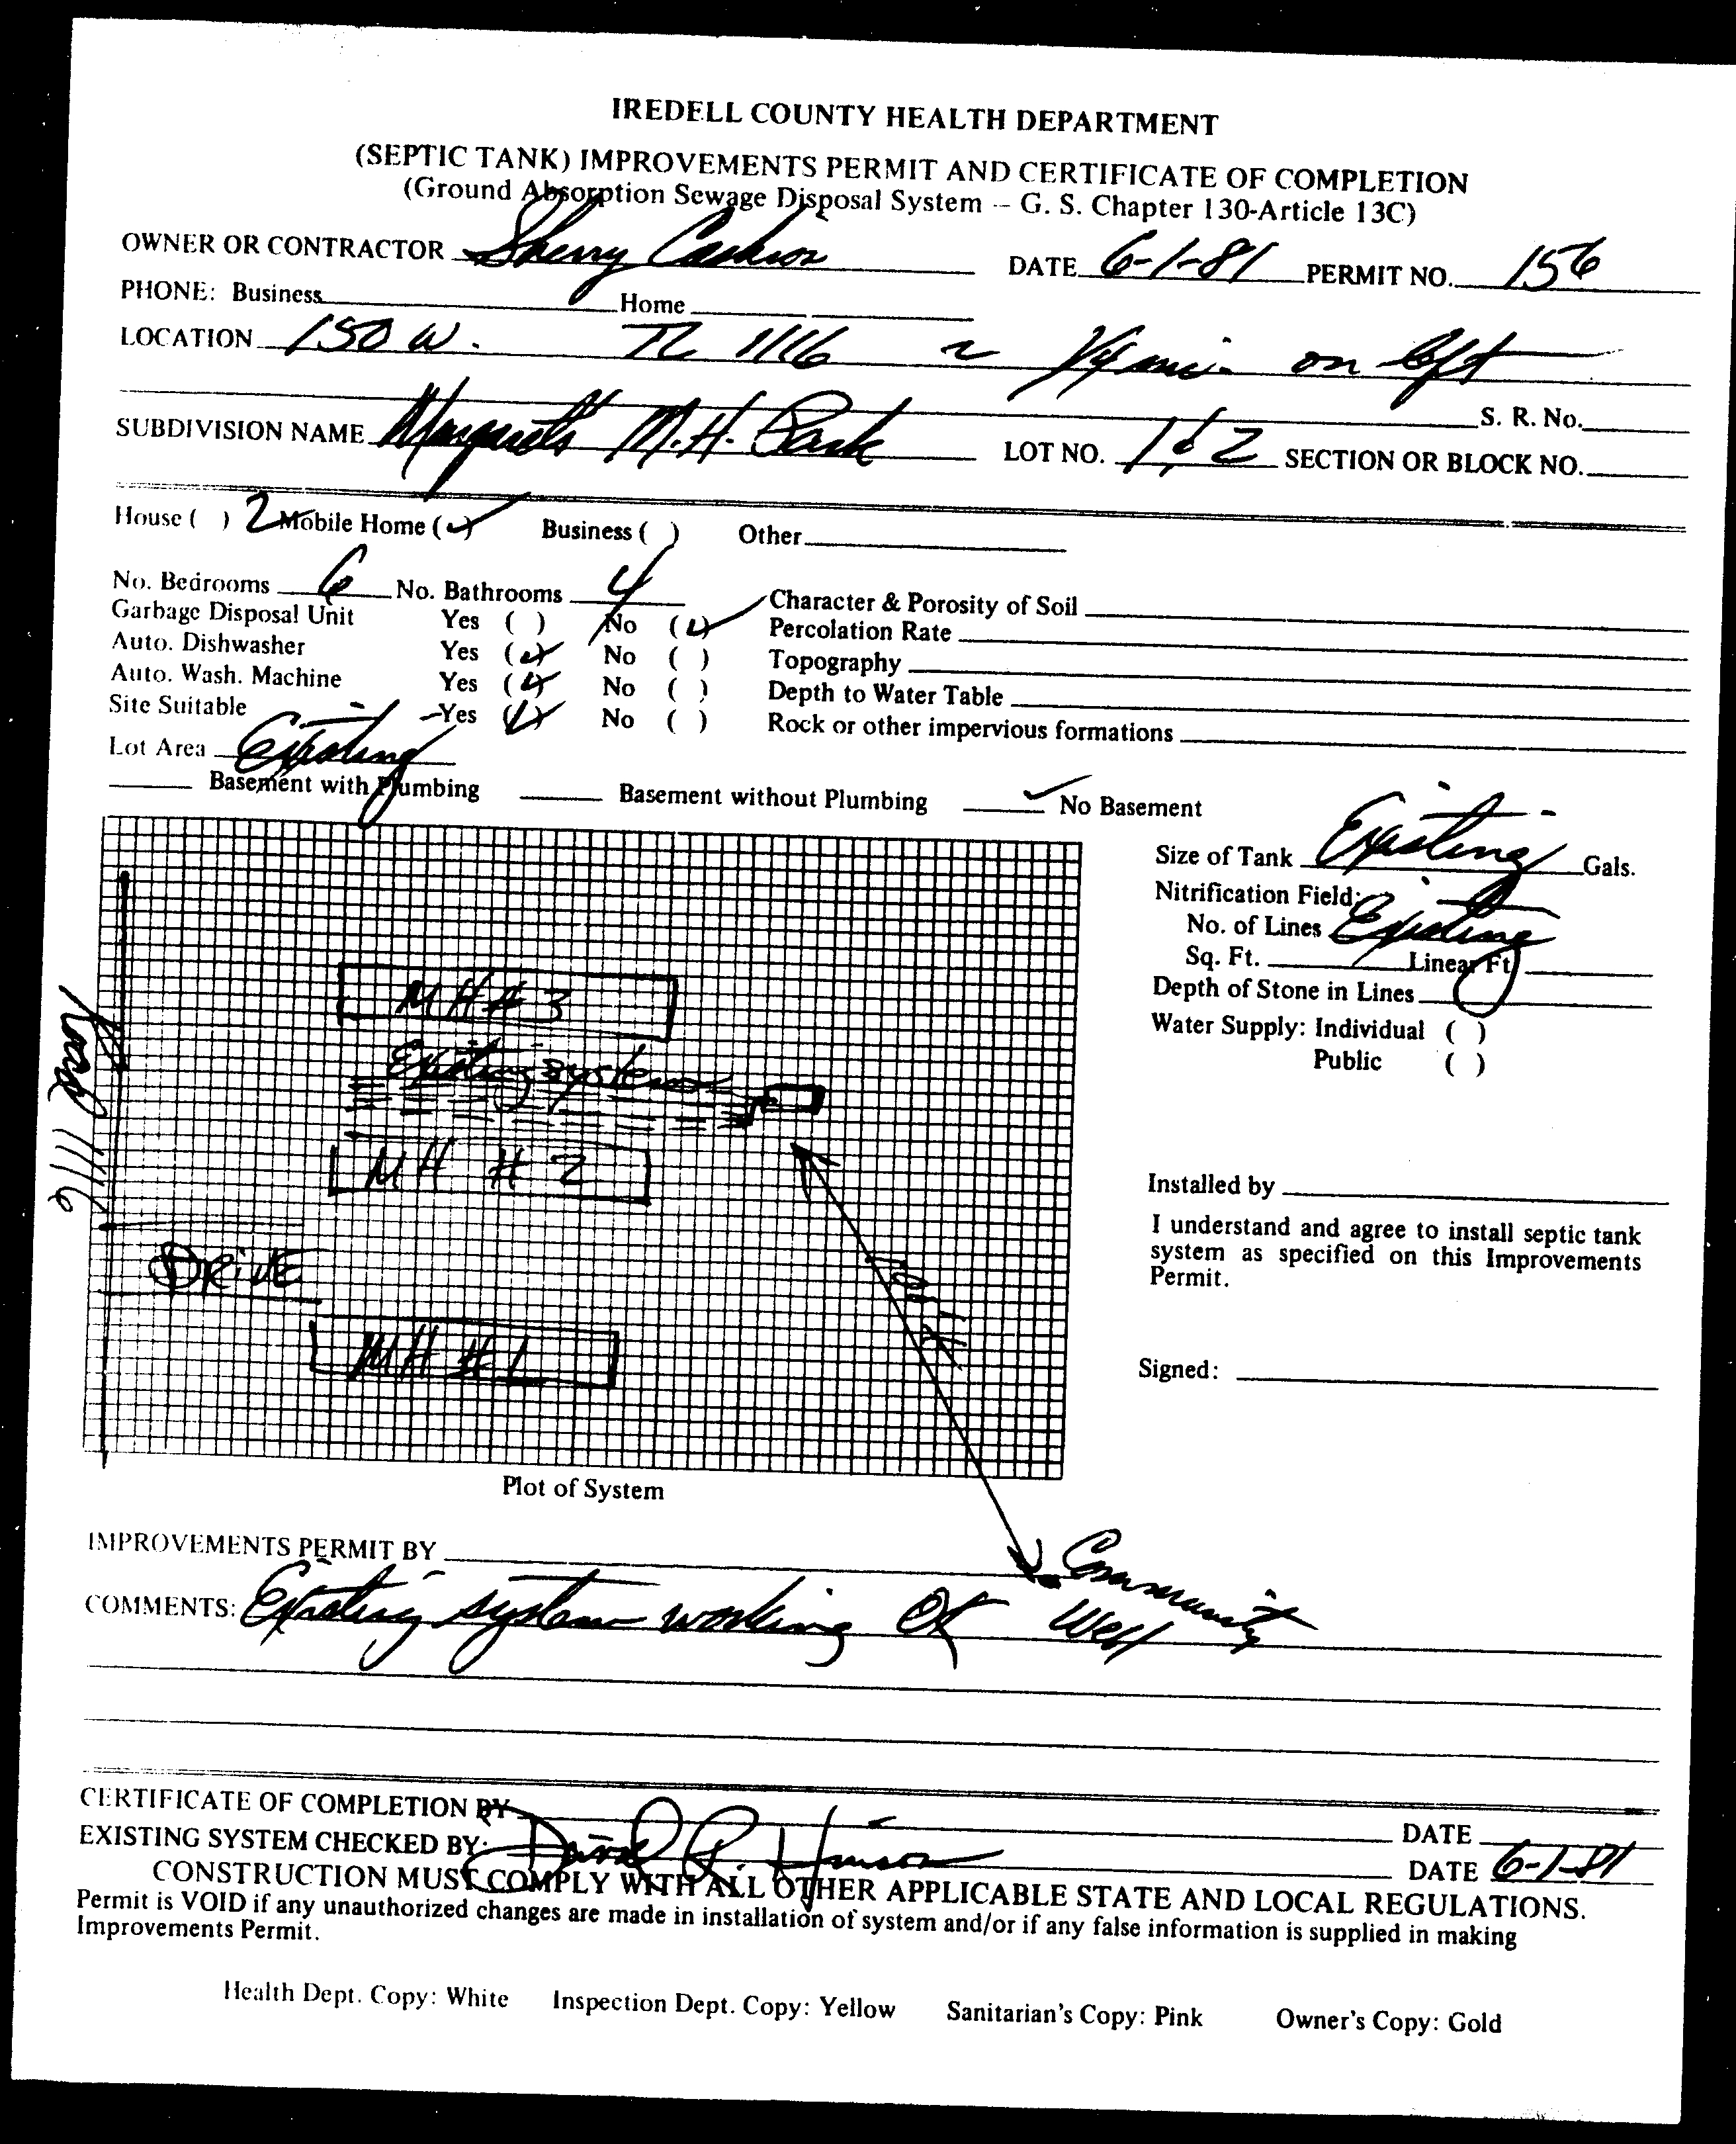 IREDELL COUNTY HEALTH DEPARTMENT
(SEPTIC TANK) IMPROVEMENTS PERMIT AND CERTIFICATE OF COMPLETION
(Ground Absorption Sewage Disposal System -- G. S. Chapter 130-Article 13C)
OWNER OR CONTRACTOR Sherry Cashion DATE 6-1-81 PERMIT NO. 156
PHONE: Business Home
LOCATION 150 W. TL 1116 ~ 1/4 mi. on left
S. R. No.
SUBDIVISION NAME M.H. Park LOT NO. 1 & 2 SECTION OR BLOCK NO.
House ( ) 2 Mobile Home (✓) Business ( ) Other
No. Bedrooms 6 No. Bathrooms 4 Character & Porosity of Soil
Garbage Disposal Unit Yes ( ) No (✓) Percolation Rate
Auto. Dishwasher Yes (✓) No ( ) Topography
Auto. Wash. Machine Yes (✓) No ( ) Depth to Water Table
Site Suitable Yes (✓) No ( ) Rock or other impervious formations
Lot Area Existing
Basement with Plumbing Basement without Plumbing ✓ No Basement
Size of Tank Existing Gals.
Nitrification Field:
No. of Lines Existing
Sq. Ft. Linear Ft.
Depth of Stone in Lines
Water Supply: Individual ( )
Public ( )
Installed by
I understand and agree to install septic tank
system as specified on this Improvements
Permit.
Signed:
MH # 3
Existing system
MH # 2
Road 1116
DRIVE
MH # 1
Plot of System
IMPROVEMENTS PERMIT BY
Community
Well
COMMENTS: Existing system working OK
CERTIFICATE OF COMPLETION BY DATE
EXISTING SYSTEM CHECKED BY: David R. DATE 6-1-81
CONSTRUCTION MUST COMPLY WITH ALL OTHER APPLICABLE STATE AND LOCAL REGULATIONS.
Permit is VOID if any unauthorized changes are made in installation of system and/or if any false information is supplied in making
Improvements Permit.
Health Dept. Copy: White Inspection Dept. Copy: Yellow Sanitarian's Copy: Pink Owner's Copy: Gold